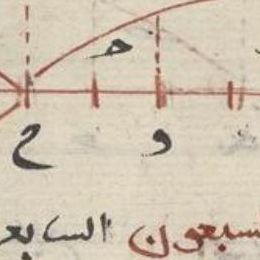 ح
ح و
سبعون السابع